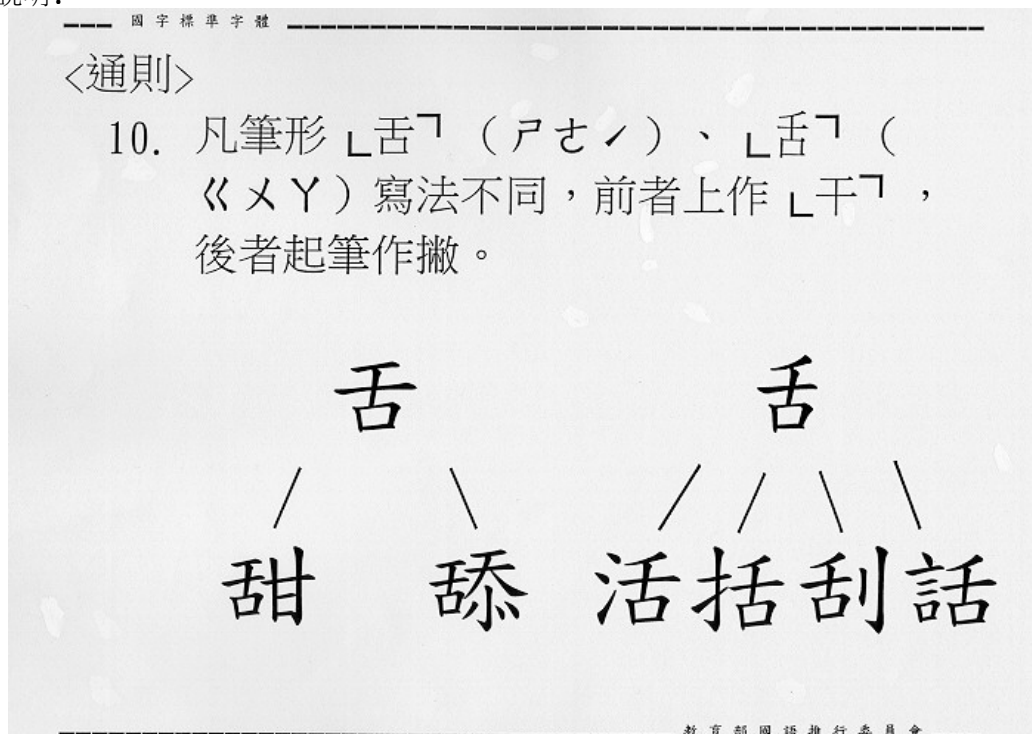 說明:
國字標準字體
<通則>
10. 凡筆形「舌」(ㄕㄜˊ)、「𠯑」(
ㄍㄨㄚ)寫法不同,前者上作「干」,
後者起筆作撇。
舌 𠯑
甜 舔 活 括 刮 話
教育部國語推行委員會